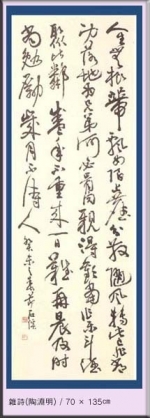 人生無根蒂飄如陌上塵分散隨風轉此已非常
身落地為兄弟何必骨肉親得歡當作樂斗酒
聚比鄰盛年不重來一日難再晨及時
當勉勵歲月不待人 癸未之春
雜詩(陶淵明) / 70 × 135㎝